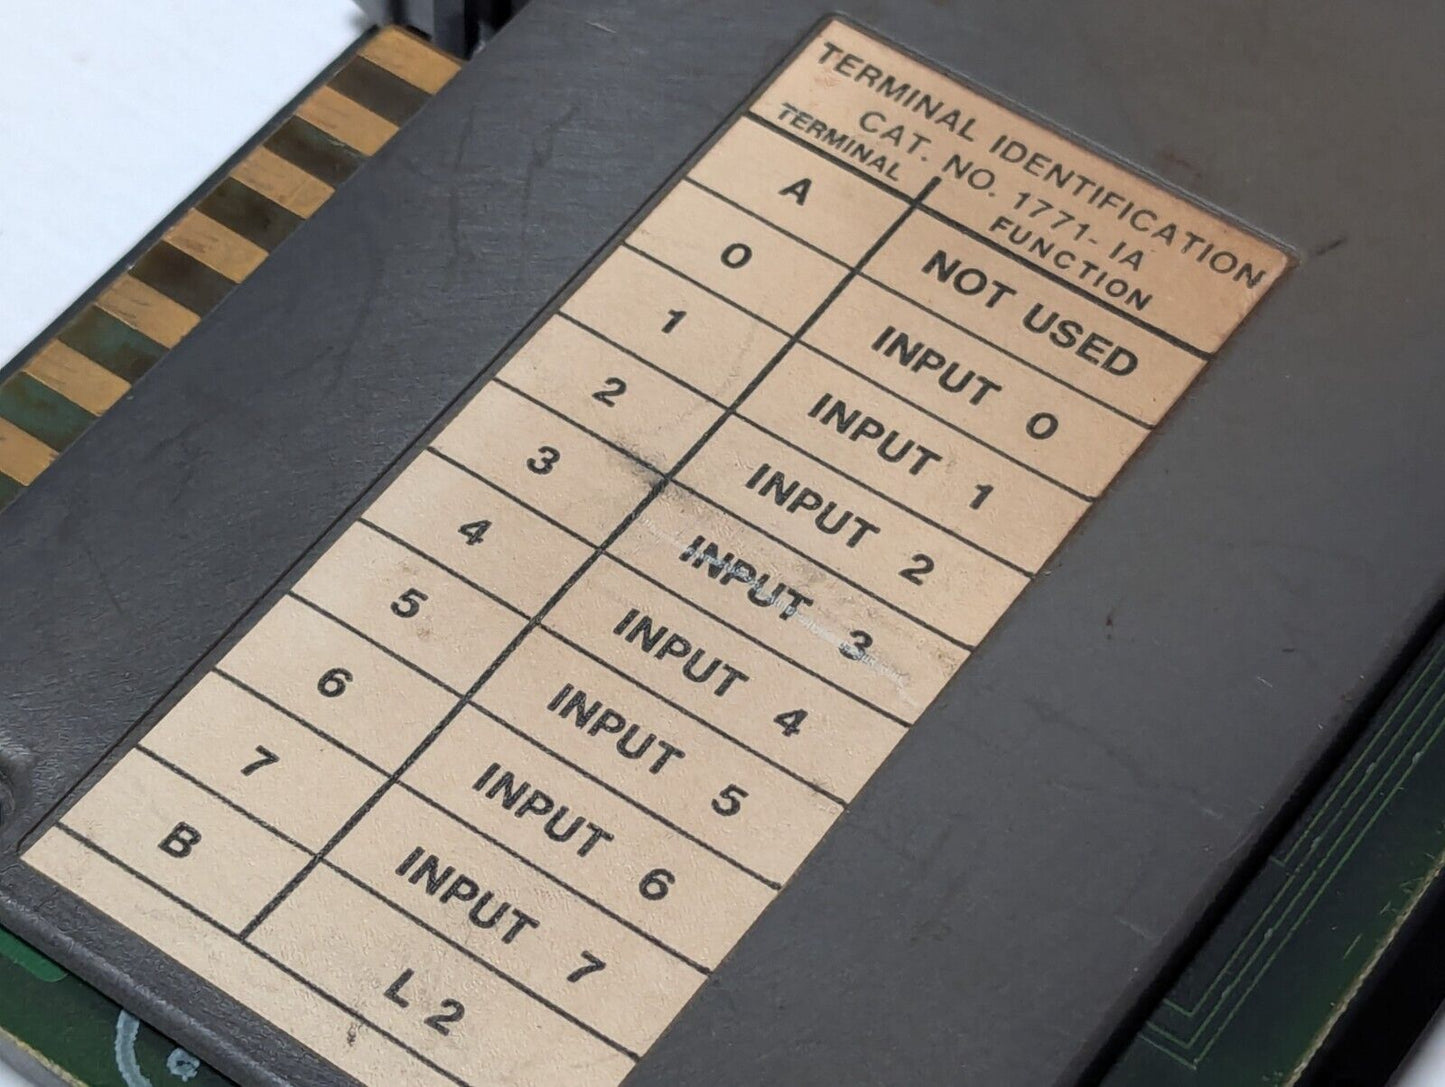 TERMINAL IDENTIFICATION
CAT. NO. 1771-IA
TERMINAL FUNCTION
A NOT USED
0 INPUT 0
1 INPUT 1
2 INPUT 2
3 INPUT 3
4 INPUT 4
5 INPUT 5
6 INPUT 6
7 INPUT 7
B L2